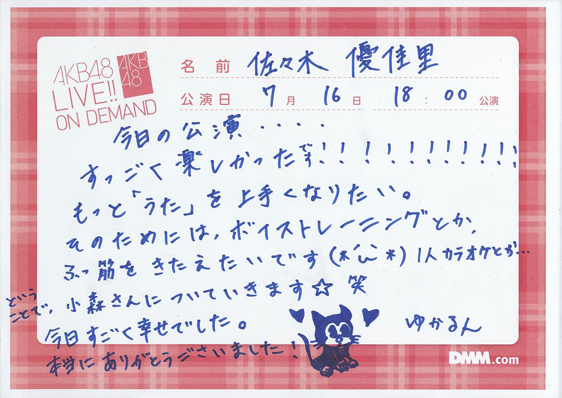 AKB48
LIVE!!
ON DEMAND
AKB
48
名前 佐々木 優佳里
公演日 7月 16日 18:00 公演
今日の公演・・・・
すっごく楽しかったです!!!!!!!!!!!
もっと「うた」を上手くなりたい。
そのためには、ボイストレーニングとか、
ふっ筋をきたえたいです(*´ω`*)1人カラオケとか…
という
ことで、小森さんについていきます☆ 笑
今日すごく幸せでした。
本当にありがとうございました!
ゆかるん
DMM.com